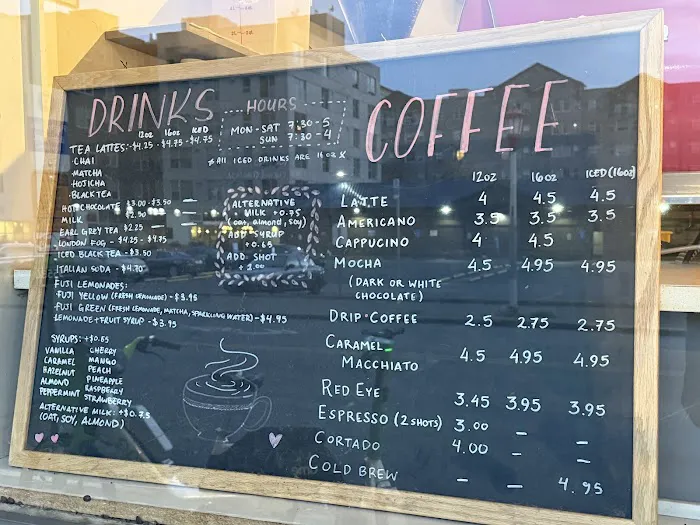 DRINKS
12oz 16oz ICED
TEA LATTES: - $4.25 - $4.75 - $4.75
· CHAI
· MATCHA
· HOJICHA
· BLACK TEA
HOT CHOCOLATE $3.00 - $3.50 —
MILK $2.50 — —
EARL GREY TEA $2.25 —
LONDON FOG - $4.25 - $4.75
ICED BLACK TEA - $3.50
ITALIAN SODA - $4.70
FUJI LEMONADES:
FUJI YELLOW (FRESH LEMONADE) - $3.95
FUJI GREEN (FRESH LEMONADE, MATCHA, SPARKLING WATER) - $4.95
LEMONADE + FRUIT SYRUP - $3.95
SYRUPS: +$0.65
VANILLA CHERRY
CARAMEL MANGO
HAZELNUT PEACH
ALMOND PINEAPPLE
PEPPERMINT RASPBERRY
STRAWBERRY
ALTERNATIVE MILK: +$0.75
(OAT, SOY, ALMOND)
HOURS
MON - SAT 7:30 - 5
SUN 7:30 - 4
ALL ICED DRINKS ARE 16oz
ALTERNATIVE
MILK +0.75
(oat, almond, soy)
ADD SYRUP
+0.65
ADD SHOT
+1.00
COFFEE
12oz 16oz ICED (16oz)
LATTE 4 4.5 4.5
AMERICANO 3.5 3.5 3.5
CAPPUCINO 4 4.5
MOCHA 4.5 4.95 4.95
(DARK OR WHITE
CHOCOLATE)
DRIP-COFFEE 2.5 2.75 2.75
CARAMEL
MACCHIATO 4.5 4.95 4.95
RED EYE 3.45 3.95 3.95
ESPRESSO (2 SHOTS) 3.00 — —
CORTADO 4.00 — —
COLD BREW — — 4.95